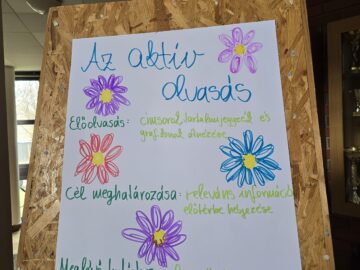 Az aktív
olvasás
Előolvasás: címsorol, tartalomjegyzék és
grafikonok átnézése
Cél meghatározása: releváns információ
előtérbe helyezése